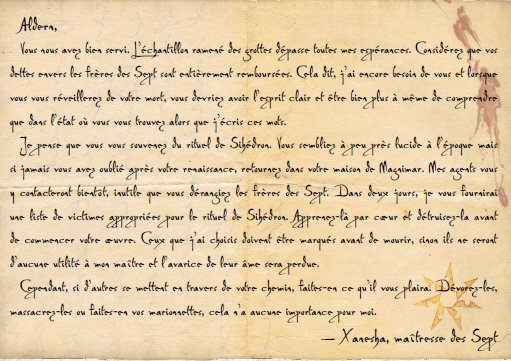 Aldern,
Vous nous avez bien servi. L'échantillon ramené des grottes dépasse toutes mes espérances. Considérez que vos
dettes envers les frères des Sept sont entièrement remboursées. Cela dit, j'ai encore besoin de vous et lorsque
vous vous réveillerez de votre mort, vous devriez avoir l'esprit clair et être bien plus à même de comprendre
que dans l'état où vous vous trouvez alors que j'écris ces mots.
Je pense que vous vous souvenez du rituel de Sihédron. Vous sembliez à peu près lucide à l'époque mais
si jamais vous avez oublié après votre renaissance, retournez dans votre maison de Magnimar. Mes agents vous
y contacteront bientôt, inutile que vous dérangiez les frères des Sept. Dans deux jours, je vous fournirai
une liste de victimes appropriées pour le rituel de Sihédron. Apprenez-là par cœur et détruisez-la avant
de commencer votre œuvre. Ceux que j'ai choisis doivent être marqués avant de mourir, sinon ils ne seront
d'aucune utilité à mon maître et l'avarice de leur âme sera perdue.
Cependant, si d'autres se mettent en travers de votre chemin, faites-en ce qu'il vous plaira. Dévorez-les,
massacrez-les ou faites-en vos marionnettes, cela n'a aucune importance pour moi.
— Xanesha, maîtresse des Sept